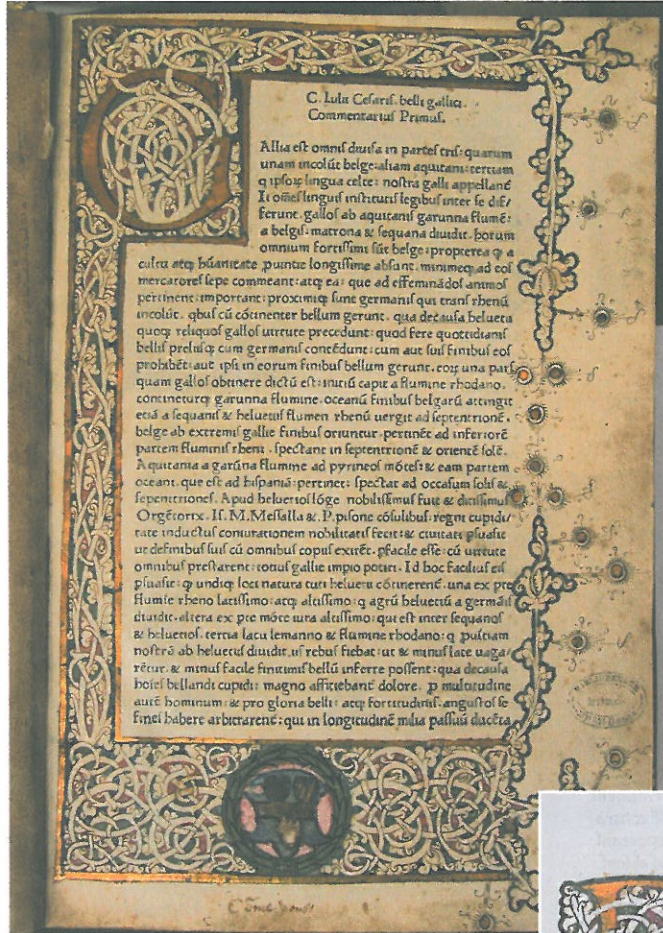 C. Iulii Cesaris. belli gallici.
Commentarius Primus.
Allia est omnis diuisa in partes tris: quarum
unam incolūt belge: aliam aquitani: tertiam
q ipsoꝝ lingua celte: nostra galli appellanť
Ii oēs linguis institutis legibus inter se dif/
ferunt. gallos ab aquitanis garunna flumē:
a belgis matrona & sequana diuidit. horum
omnium fortissimi sūt belge: propterea ꝙ a
cultu atqȝ hūanitate ꝓuintie longissime absunt. minimeqȝ ad eos
mercatores sepe commeant: atqȝ ea: que ad effeminādos animos
pertinent: important: proximiqȝ sunt germanis qui trans rhenū
incolūt. qbus cū cōtinenter bellum gerunt. qua decausa heluetii
quoqȝ reliquos gallos uirtute precedunt: quod fere quottidianis
bellis preliisqȝ cum germanis contēdunt: cum aut suis finibus eos
prohibēt: aut ipsi in eorum finibus bellum gerunt. eoꝝ una pars
quam gallos obtinere dictū est: initiū capit a flumine rhodano.
contineturqȝ garunna flumine. oceanū finibus belgarū attingit
etiā a sequanis & heluetiis flumen rhenū uergit ad septentrionē.
belge ab extremis gallie finibus oriuntur. pertinēt ad inferiorē
partem fluminis rheni. spectant in septentrionē & orientē solē.
Aquitania a garūna flumine ad pyrineos mōtes: & eam partem
oceani. que est ad hispaniā: pertinet: spectat ad occasum solis &
septentriones. Apud heluetios lōge nobilissimus fuit & ditissimus
Orgētorix. Is. M. Messalla &. P. pisone cōsulibus: regni cupidi/
tate inductus coniurationem nobilitatis fecit: & ciuitati ꝑsuasit
ut definibus suis cū omnibus copiis exirēt. ꝑfacile esse: cū uirtute
omnibus prestarent: totius gallie impio potiri. Id hoc facilius eis
ꝑsuasit: ꝙ undiqȝ loci natura tuti heluetii cōtinerenť. una ex pte
flumie rheno latissimo: atqȝ altissimo: q agrū heluetiū a germāis
diuidit. altera ex pte mōte iura altissimo: qui est inter sequanos
& heluetios. tertia lacu lemanno & flumine rhodano: q ꝓuitiam
nostrā ab heluetiis diuidit. iis rebus fiebat: ut & minus late uaga/
rētur. & minus facile finitimis bellū inferre possent: qua decausa
hoies bellandi cupidi: magno afficiebanť dolore. ꝓ multitudine
autē hominum: & pro gloria belli: atqȝ fortitudinis. angustos se
fines habere arbitrarenť: qui in longitudinē milia passuū ducēta